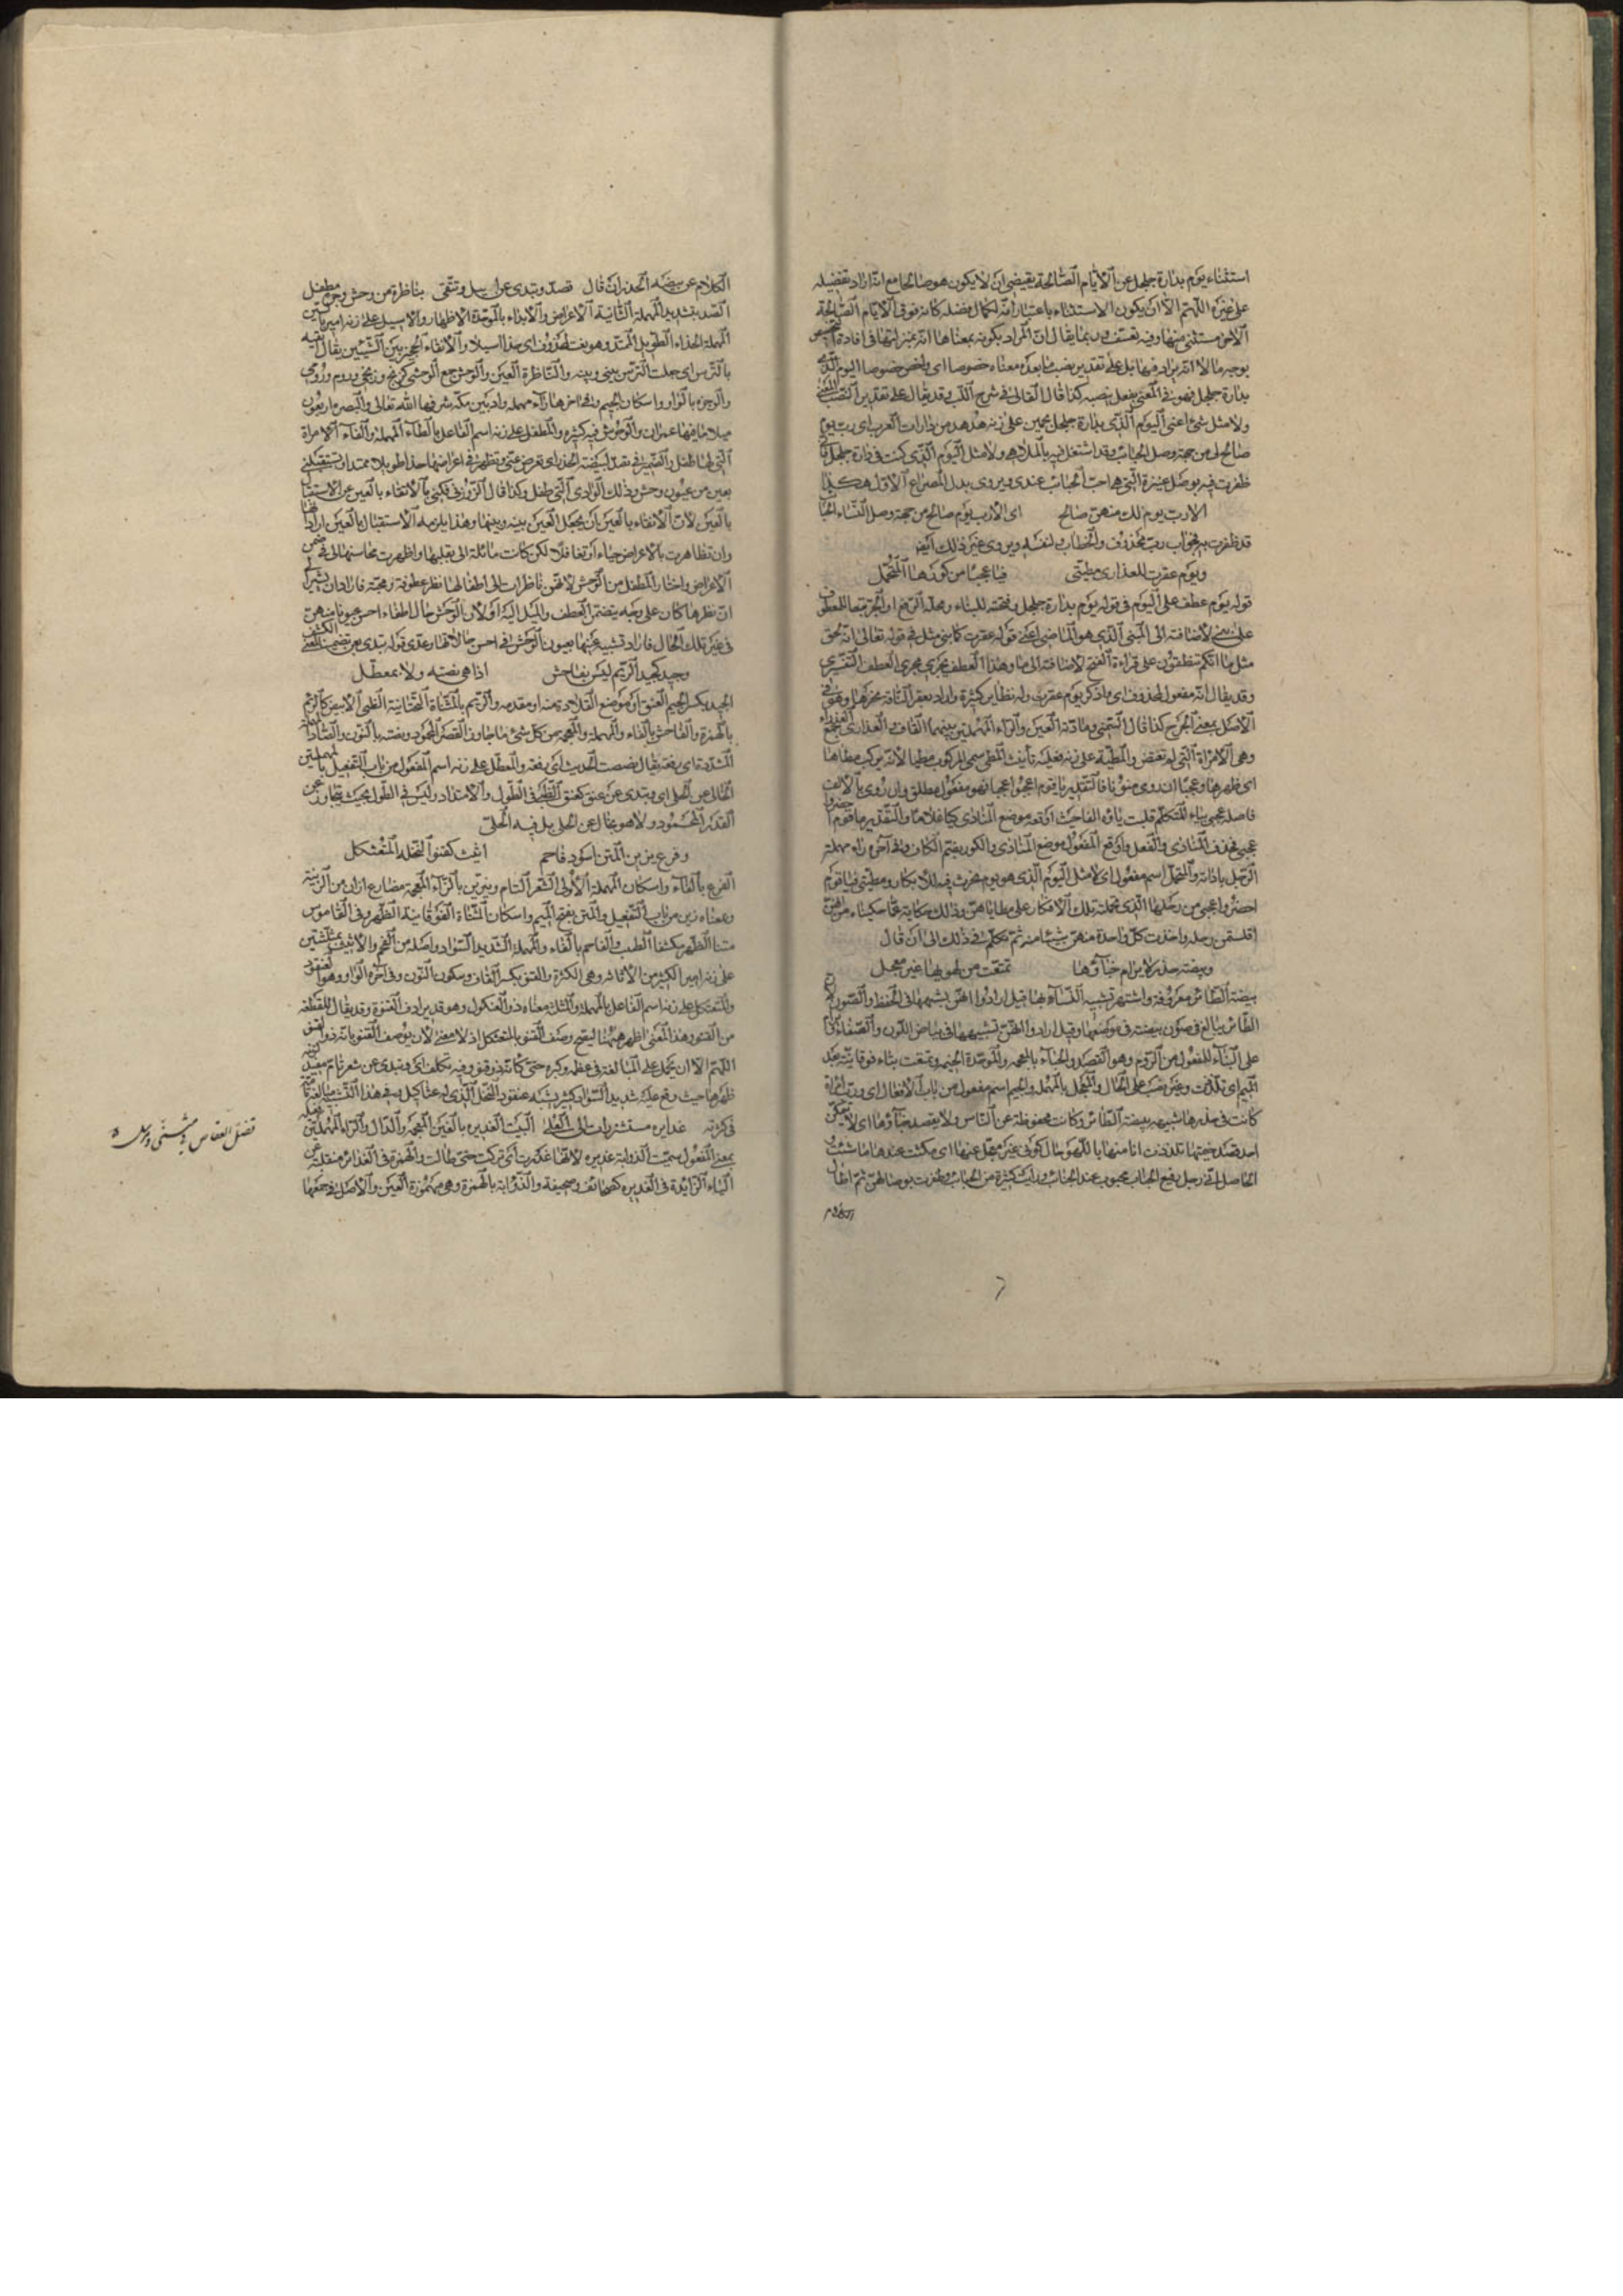 استثناء يوم بدارة جلجل عن الأيام الصالحة يقيضى ان لا يكون هو صالحا مع انه اراد تفضيله
على غيره اللهم الا ان يكون الاستثناء باعتبار انه لكمال فضله كانه فوق الأيام الصالحة
الأخر مستثنى منها وفيه تعسف وربما يقال ان المراد بكونه بمعناها انه بمنزلتها فى افادة
بدارة جلجل فهو فى المعنى بفعل ينصبه كذا قال القالى فى شرح اللب وقد يقال على تقدير النصب
ولا مثل شئ اعنى اليوم الذى بدارة جلجل بجيمين على زنة هدهد من دارات العرب اى رب يوم
صالح لى من جهة وصل الحبائب وقد اشتغل فيه بالملاهى ولا مثل اليوم الذى كنت فى دارة جلجل
ظفرت فيه بوصل عنيزة التى هى احب الحبائب عندى ويروى بدل المصراع الأول هكذا
الا رب يوم لك منهن صالح اى الا رب يوم صالح من جهة وصل النساء
قد ظفرت به فجواب رب محذوف والخطاب لنفسه ويروى غير ذلك ايضا
ويوم عقرت للعذارى مطيتى فيا عجبا من كورها المتحمل
قوله يوم عطف على اليوم فى قوله يوم بدارة جلجل وفتحته للبناء ومحله الرفع او الجر تبعا للمعطوف
على لاضافته الى المبنى الذى هو الماضى اعنى قوله عقرت كما بنى مثل فى قوله تعالى انه لحق
مثل ما انكم تنطقون على قراءة الفتح لاضافته الى ما وهذا العطف يجرى مجرى العطف التفسيرى
وقد يقال انه مفعول لمحذوف اى واذكر يوم عقرت وله نظاير كثيرة واراد بعقر الناقة نحرها وهو فى
الأصل بمعنى الجرح كذا قال العينى ومادته العين والراء المهملتين بينهما القاف والعذارى جمع العذراء
وهى الامرأة التى لم تفتض والمطية على زنة فعيلة تأنيث المطى سمى المركوب مطيا لأنه يركب مطاها
اى ظهرها وعجبا ان روى منونا فالتقدير يا قوم اعجبوا عجبا فهو مفعول مطلق وان روى بالألف
فاصله عجبى بياء المتكلم قلبت ياؤه الفا حيث اوقعه موضع المنادى كيا غلاما والتقدير يا قوم احضروا
عجبى فحذف المنادى والفعل واوقع المفعول موضع المنادى والكور بضم الكاف وفى آخره راء مهملة
الرحل باداته والمتحمل اسم مفعول اى لا مثل اليوم الذى هو يوم نحرت فيه للابكار ومطيتى فيا قوم
احضروا عجبى من رحلها الذى تحملته تلك الابكار على مطاياهن وذلك حكاية عما حكيناه من انهن
اقتسمن رحله واخذت كل واحدة منهن شيئا منه ثم تكلم فى ذلك الى ان قال
وبيضة خدر لا يرام خباؤها تمتعت من لهو بها غير معجل
بيضة الطائر معروفة واشتهر تشبيه النساء بها قيل ارادوا انهن يشبهنها فى الحفظ والصون
الطائر يبالغ فى صون بيضته فى موضعها وقيل ارادوا انهن تشبيهها فى بياض اللون والصفاء
على البناء للمفعول من الروم وهو القصد والخباء بالمعجمة والموحدة الخيمة وتمتعت بتاء فوقانية بعد
الميم اى تلذذت وغير نصب على الحال والمعجل بالمهملة والجيم اسم مفعول من باب الافعال اى ورب امرأة
كانت فى خدرها شبيهة ببيضة الطائر وكانت محفوظة عن الناس ولا يقصد خباؤها اى لا يتمكن
احد قصد خيمتها تلذذت انا منها باللهو حال كونى غير معجل عنها اى مكثت عندها ما شئت
الحاصل انى رجل رفيع الجناب محبوب عند الحبائب ورايت كثيرة من الحبائب وظفرت بوصالهن ثم اطال
الكلام
٦
الكلام عن بيضة الخدر الى ان قال تصد وتبدى عن اسيل وتتقى بناظرة من وحش وجرة مطفل
الصد بتشديد المهملة الثانية الأعراض والأبداء بالموحدة الاظهار والاسيل على زنة امير بالسين
المهملة الخد الطويل الممتد وهو نعت لمحذوف اى خدا اسيلا والاتقاء الحجز بين الشيئين يقال اتقيه
بالترس اى جعلت الترس بينى وبينه والناظرة العين والوحش جمع الوحشى كزنج وزنجى وروم ورومى
والوجرة بالواو واسكان الجيم وفى اخرها راء مهملة واد بين مكة شرفها الله تعالى والبصرة اربعون
ميلا ما فيها عمران والوحوش فيه كثيرة والمطفل على زنة اسم الفاعل بالطاء المهملة والفاء الامرأة
التى لها طفل والضمير فى تصد لبيضة الخدر اى تعرض عنى وتظهر فى اعراضها خدا طويلا ممتدا وتستقبلنى
بعين من عيون وحش وذلك الوادى التى طفل وكذا قال الزوزنى فكنى بالاتقاء بالعين عن الاستقبال
بالعين لأن الاتقاء بالعين بان يجعل العين بينه وبينها وهذا يلزمه الاستقبال بالعين اراد
وان تظاهرت بالاعراض حياء او تغافلا لكن كانت مائلة الى بقلبها واظهرت محاسنها لى فى ضمن
الأعراض واختار المطفل من الوحش لانهن ناظرات الى اطفالها نظر عطوفة ومحبة فاراد ان يشير الى
ان نظرها كان على وجه يتضمن العطف والميل اليه او لأن الوحش حال اطفاء احسن عيونا منهن
فى غير تلك الحال فاراد تشبيه عينها بعيون الوحش فى احسن حالاتها وعدى قوله تبدى بعن تضمين المعنى الكشف
وجيد كجيد الريم ليس بفاحش اذا هى نصته ولا بمعطل
الجيد بكسر الجيم العنق او موضع القلادة منه او مقدمه والريم بالمثناة التحتانية الظبى الأبيض كالرئم
بالهمزة والفاحش بالفاء والمهملة والمعجمة من كل شئ ما جاوز القصد المحمود ونصته بالنون والصاد
المشددة اى رفعته يقال نصصت الحديث اى رفعته والمعطل على زنة اسم المفعول من باب التفعيل بالمهملتين
الخالى عن الحلى اى وتبدى عن عنق كعنق الظبى فى الطول والامتداد وليس فى الطول بحيث يتجاوز عن
القدر المحمود ولا هو بخال عن الحلى بل فيه الحلى
وفرع يزين المتن اسود فاحم اثيث كقنو النخلة المتعثكل
الفرع بالفاء واسكان المهملة الأولى الشعر التام ويزين بالزاء المعجمة مضارع ازان من الزينة
ومعناه زين من باب التفعيل والمتن بفتح الميم واسكان المثناة الفوقانية الظهر وفى القاموس
متنا الظهر مكتنفا الصلب والفاحم بالفاء والمهملة الشديد السواد واصله من الفحم والأثيث بمثلثتين
على زنة امير الكثير من الأثاثة وهى الكثرة والقنو بكسر القاف وسكون النون وفى آخره الواو وهو العنقود
والمتعثكل على زنة اسم الفاعل بالمهملة والمثلثة معناه ذو العثكول وهو قد يرادف القنو وقد يقال للقطعة
من القنو وهذا المعنى اظهر ههنا ليصح وصف القنو بالمتعثكل اذ لا معنى لأن يوصف القنو بانه ذو القنو
اللهم الا ان يحمل على المبالغة فى عظمه وكبره حتى كانه ذو قنو وفيه تكلف اى وتبدى عن شعر تام
ظهرها حيث وقع عليه شديد السواد كثير يشبه عنقود النخل الذى له عثاكيل وفى هذا التشبيه مبالغة
فى كثرته غدايره مستشزرات الى العلى البيت الغديرة بالغين المعجمة والدال والراء المهملتين
بمعنى المفعول سميت الذوابة غديرة لانها غدرت اى تركت حتى طالت والهمزة فى الغدائر منقلبة عن
الياء الزائدة فى الغديرة كصحائف وصحيفة والذؤابة بالهمزة وهى مهموزة العين والأصل فى جمعها